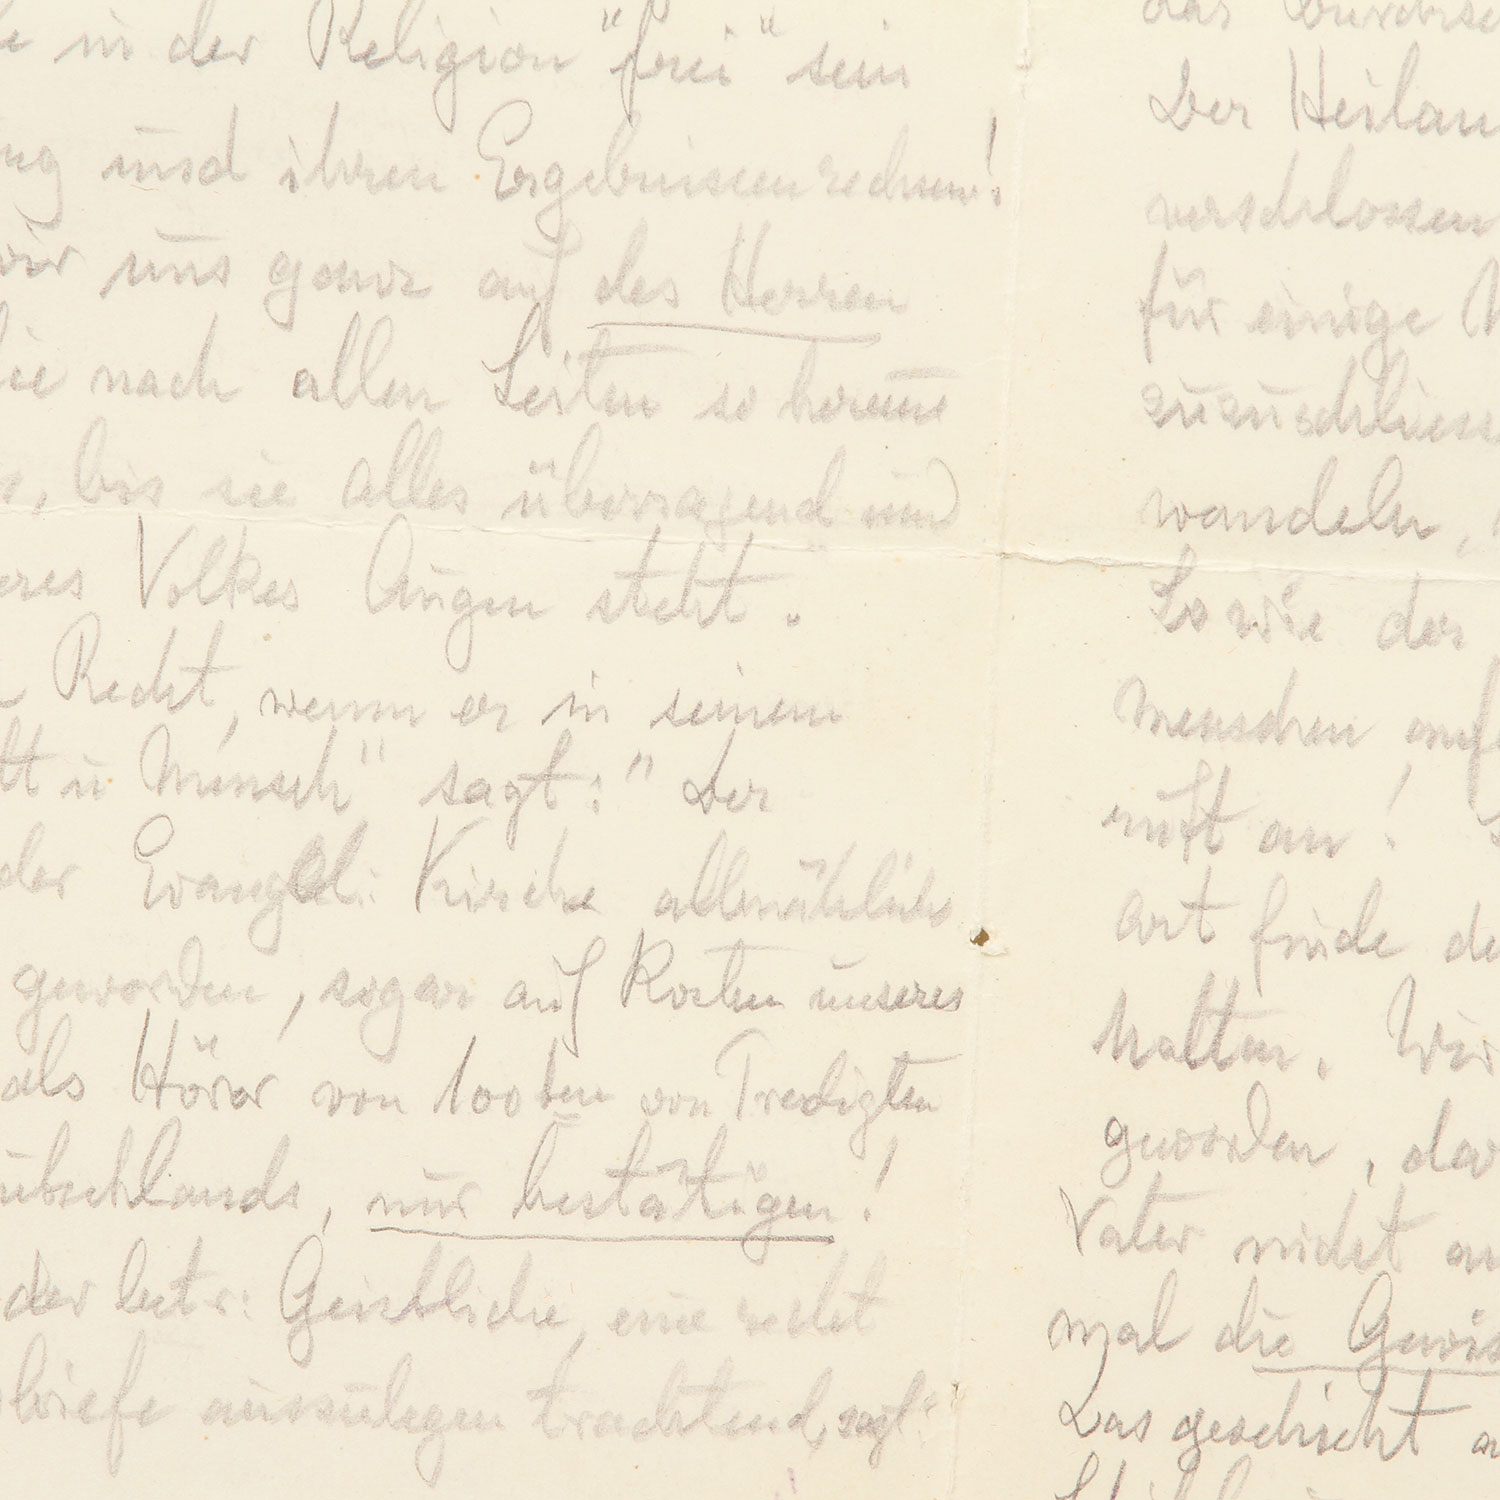 in der Religion "frei" sein
ung und ihren Ergebnissen rechnen!
wir uns ganz auf des Herren
die nach allen Seiten so
s, bis sie alles überragend und
eres Volkes Augen steht.
Recht, wenn er in seinem
tt u Mensch" sagt: "Der
der Evangel: Kirche allmählich
geworden, sogar auf Kosten unseres
als Hörer von 100ten von Predigten
utschlands, nur bestätigen!
der betr: Geistliche, eine recht
briefe auszulegen trachtend, sagt:
das
Der Heilan
verschlossen
für einige
zuzuschliess
wandeln,
So wie der
Menschen auf
ruft an!
Art finde de
halten. Wir
geworden, da
Vater nicht au
mal die Gewis
Das geschieht a